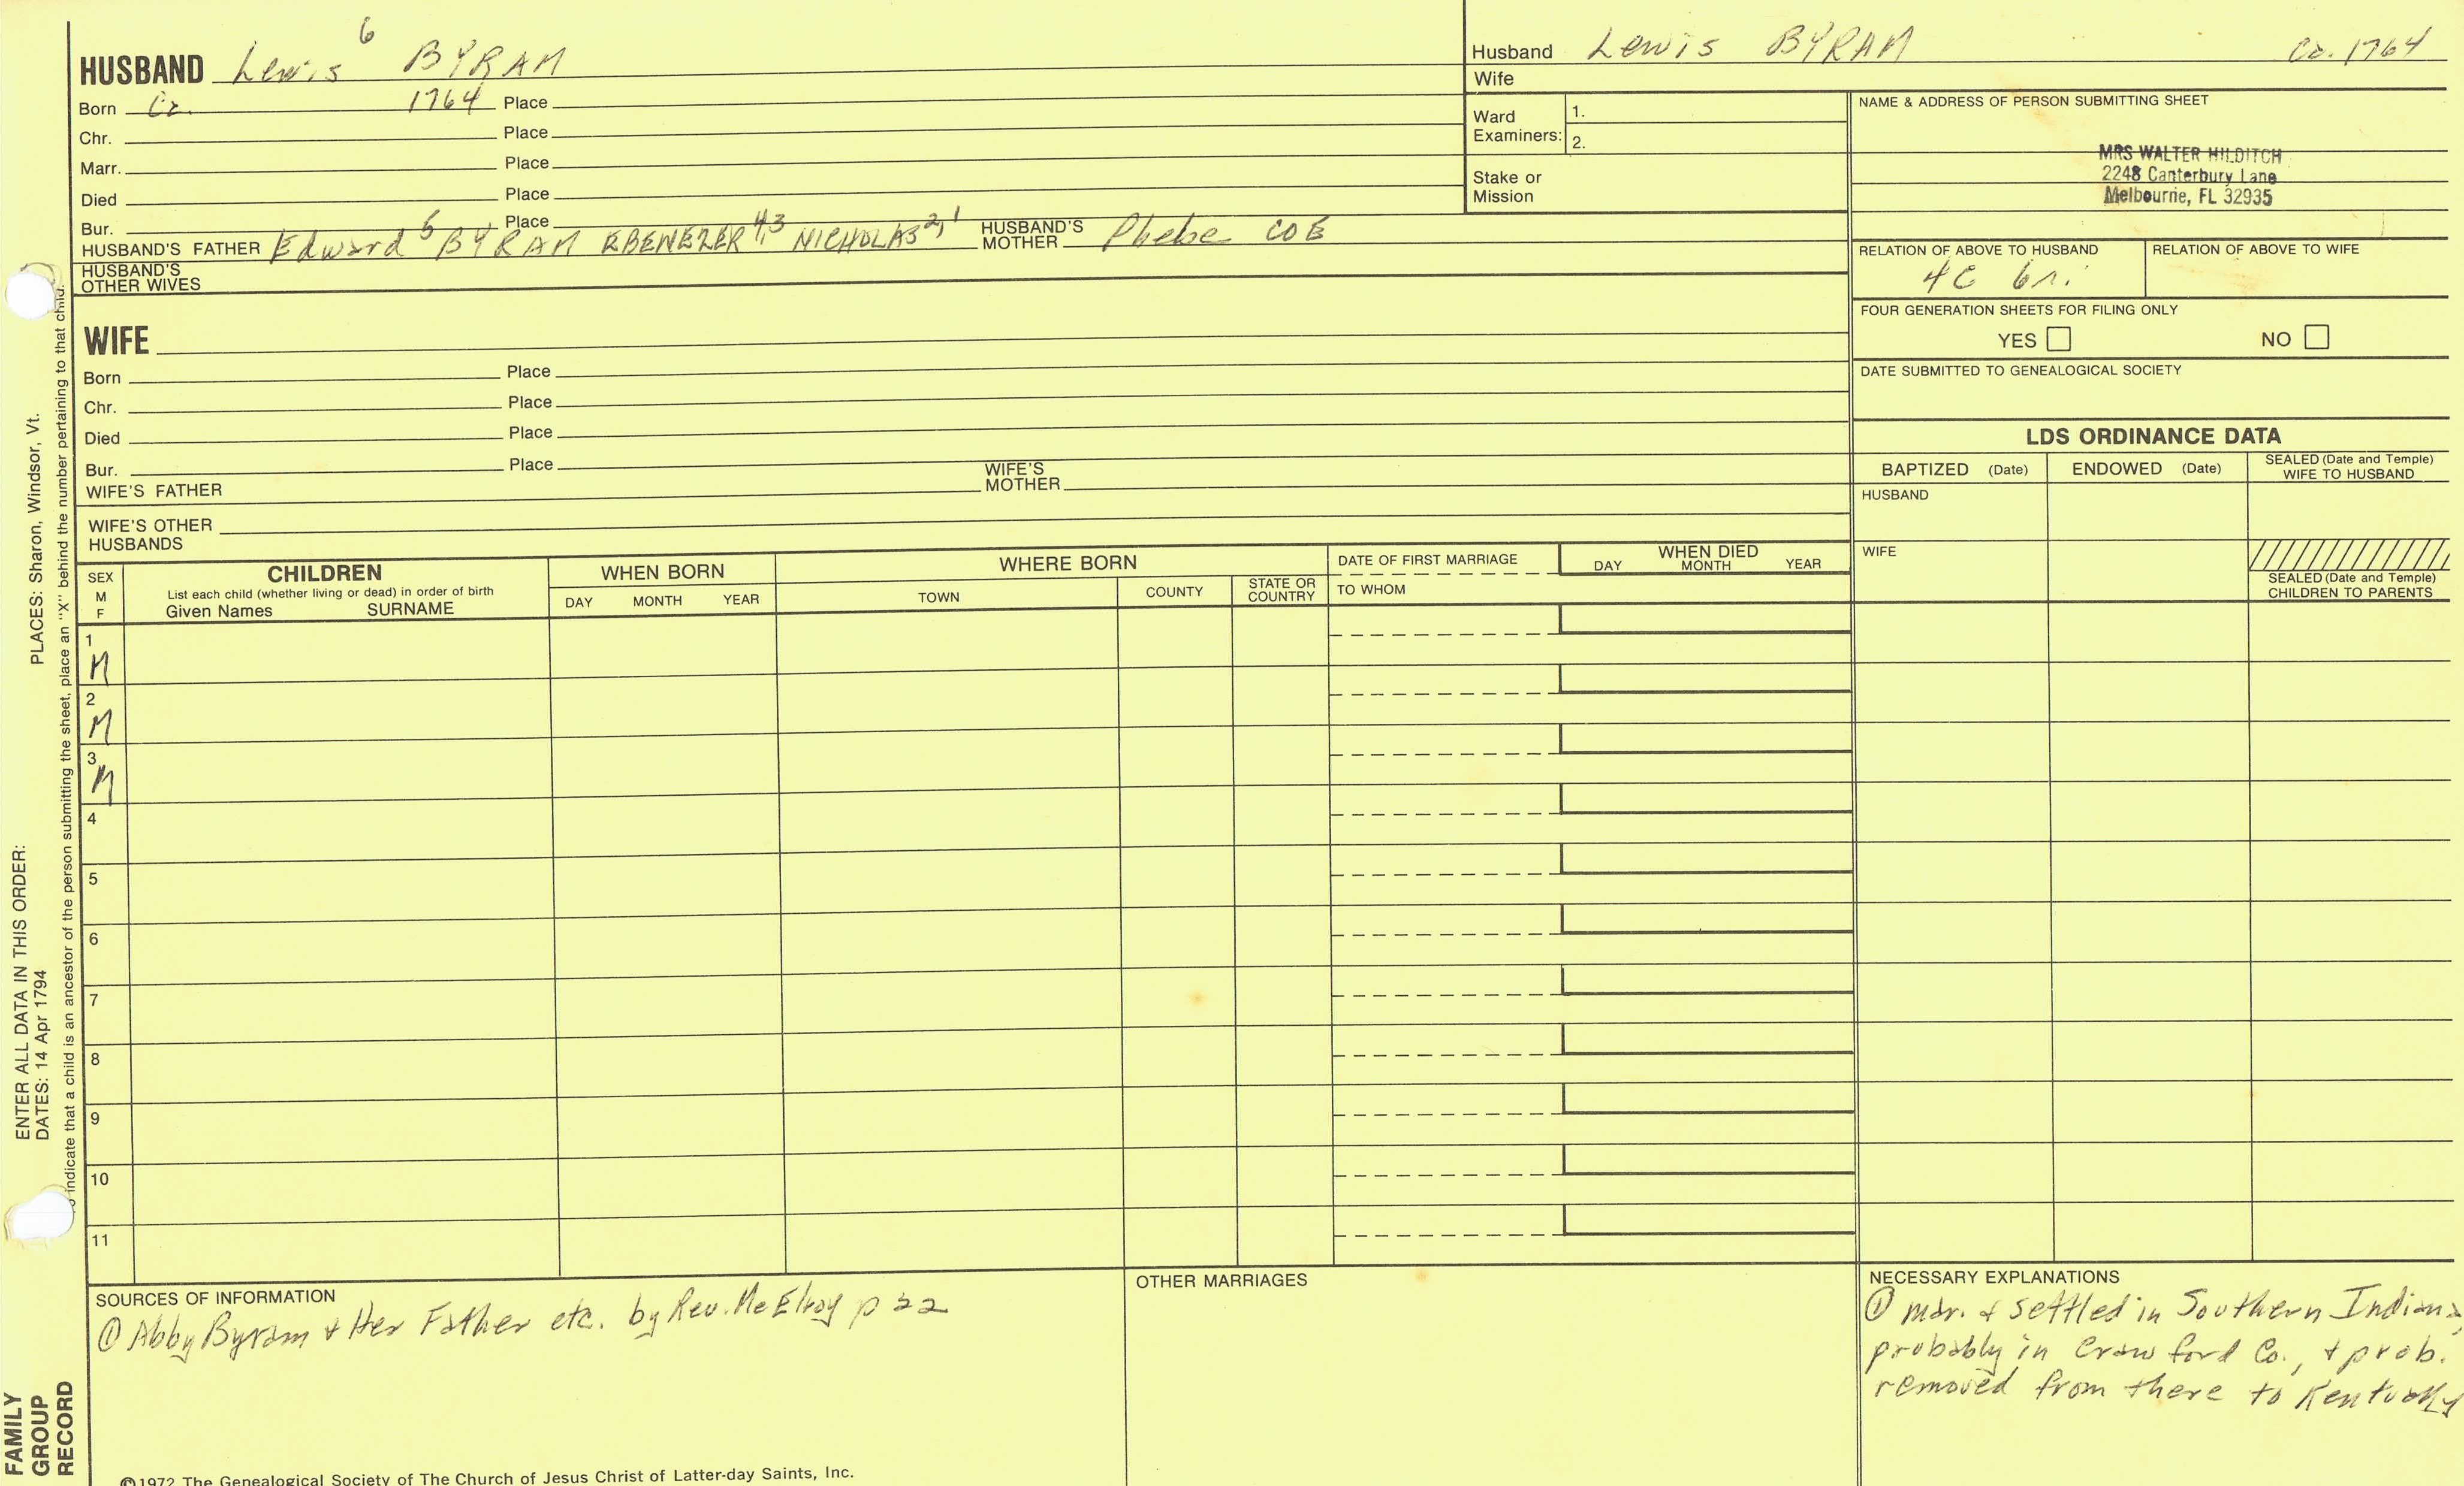 HUSBAND Lewis 6 BYRAM
Born Ca. 1764 Place
Chr. Place
Marr. Place
Died Place
Bur. Place
HUSBAND'S FATHER Edward 5 BYRAM EBENEZER 4,3 NICHOLAS 2,1 HUSBAND'S MOTHER Phebe COE
HUSBAND'S OTHER WIVES
WIFE
Born Place
Chr. Place
Died Place
Bur. Place
WIFE'S FATHER WIFE'S MOTHER
WIFE'S OTHER HUSBANDS
Husband Lewis BYRAM Ca. 1764
Wife
Ward Examiners: 1.
2.
Stake or Mission
NAME & ADDRESS OF PERSON SUBMITTING SHEET
MRS WALTER HILDITCH
2248 Canterbury Lane
Melbourne, FL 32935
RELATION OF ABOVE TO HUSBAND RELATION OF ABOVE TO WIFE
4C 6r.
FOUR GENERATION SHEETS FOR FILING ONLY
YES NO
DATE SUBMITTED TO GENEALOGICAL SOCIETY
LDS ORDINANCE DATA
BAPTIZED (Date) ENDOWED (Date) SEALED (Date and Temple) WIFE TO HUSBAND
HUSBAND
WIFE
SEALED (Date and Temple) CHILDREN TO PARENTS
SEX M F
CHILDREN
List each child (whether living or dead) in order of birth
Given Names SURNAME
WHEN BORN
DAY MONTH YEAR
WHERE BORN
TOWN COUNTY STATE OR COUNTRY
DATE OF FIRST MARRIAGE
TO WHOM
WHEN DIED
DAY MONTH YEAR
1
M
2
M
3
M
4
5
6
7
8
9
10
11
SOURCES OF INFORMATION
① Abby Byram & Her Father etc. by Rev. McElroy p 22
OTHER MARRIAGES
NECESSARY EXPLANATIONS
① mar. & settled in Southern Indiana,
probably in Crawford Co., & prob.
removed from there to Kentucky
©1972 The Genealogical Society of The Church of Jesus Christ of Latter-day Saints, Inc.
FAMILY
GROUP
RECORD
ENTER ALL DATA IN THIS ORDER:
DATES: 14 Apr 1794 PLACES: Sharon, Windsor, Vt.
indicate that a child is an ancestor of the person submitting the sheet, place an "X" behind the number pertaining to that child.